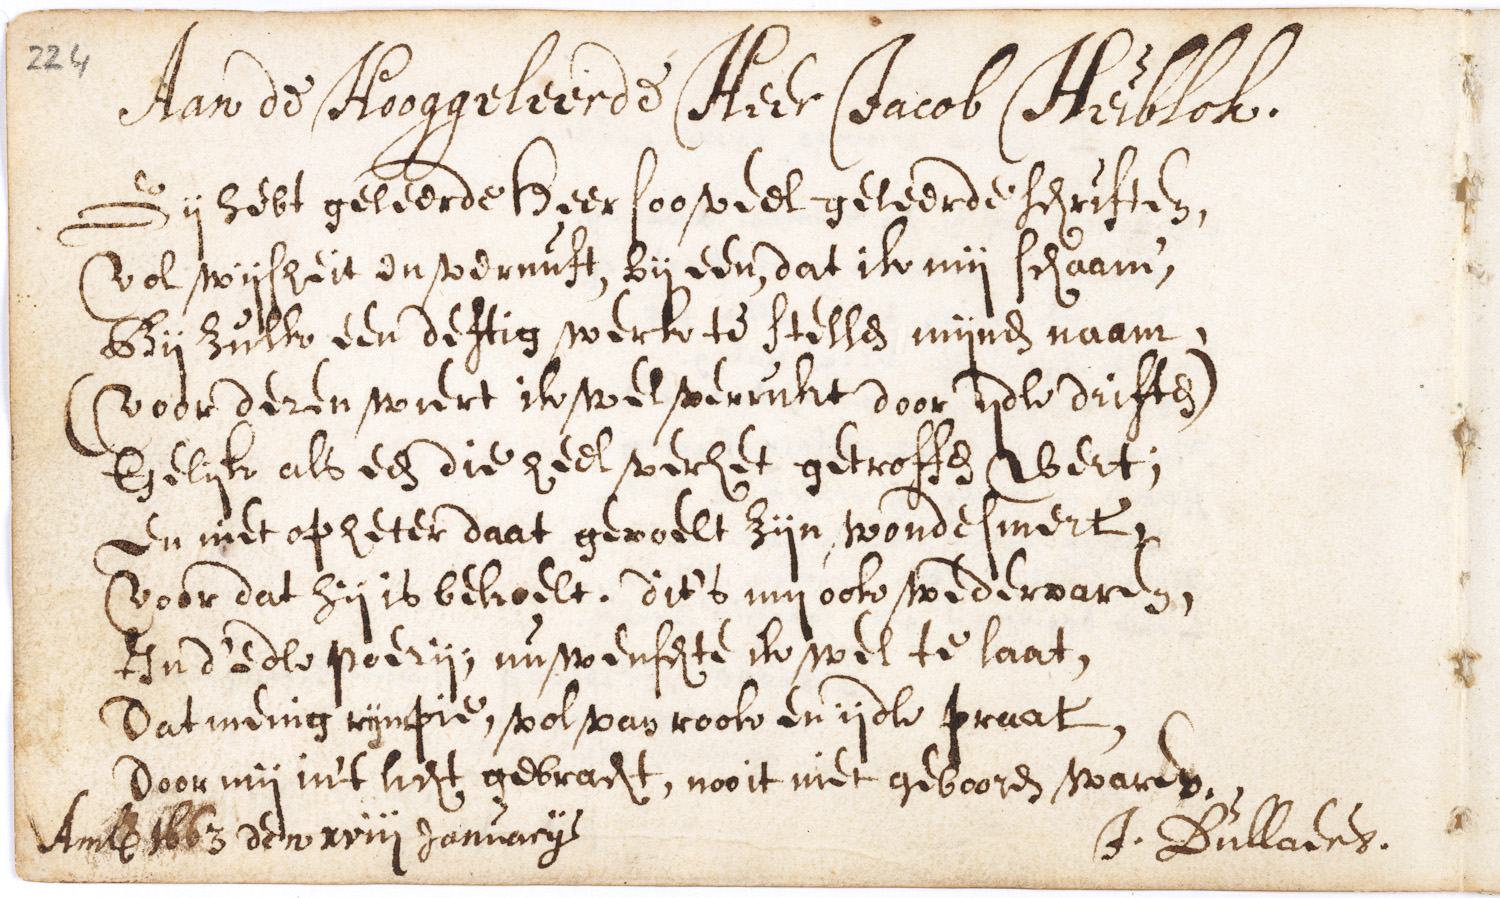 224
Aan de Hooggeleerde Heer Jacob Heiblok.
Gij hebt geleerde Heer soo veel geleerde schriften,
Vol wijsheit en vernuft, bij een, dat ik mij schaam,
Bij zulk een deftig werk te stellen mijnen naam,
(Voor dezen wiert ik wel verrukt door ijdle driften)
Gelijk als een die heel verhet getroffen wert;
En niet op heter daat gevoelt zijn wonde smert,
Voor dat hij is bekoelt. Dit's mij ook wedervaren,
In d'edle poezij; nu wenschte ik wel te laat,
Dat menig rijmpie, vol van rook en ijdle praat,
Door mij in't licht gebracht, nooit niet gebooren waren.
1663 den xviii January
J. Bullaers.